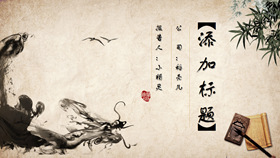 【添加标题】
公司：稻壳儿
报告人：小稻壳